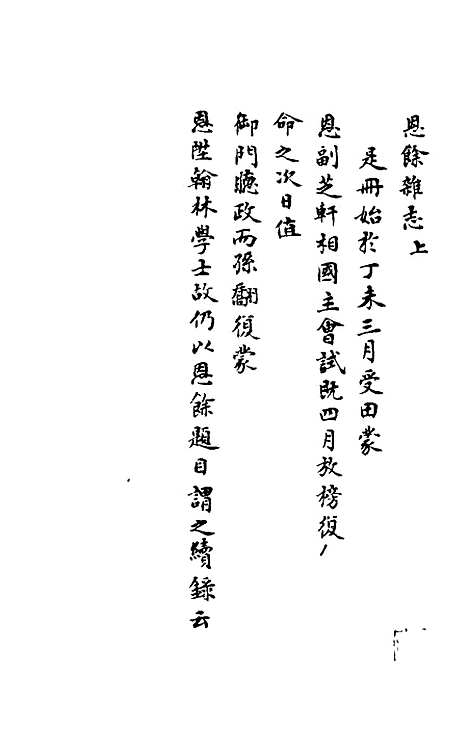 恩餘雜志上
是冊始於丁未三月受田蒙
恩副芝軒相國主會試既四月放榜復
命之次日值
御門聽政而孫翻復蒙
恩陞翰林學士故仍以恩餘題目謂之續錄云